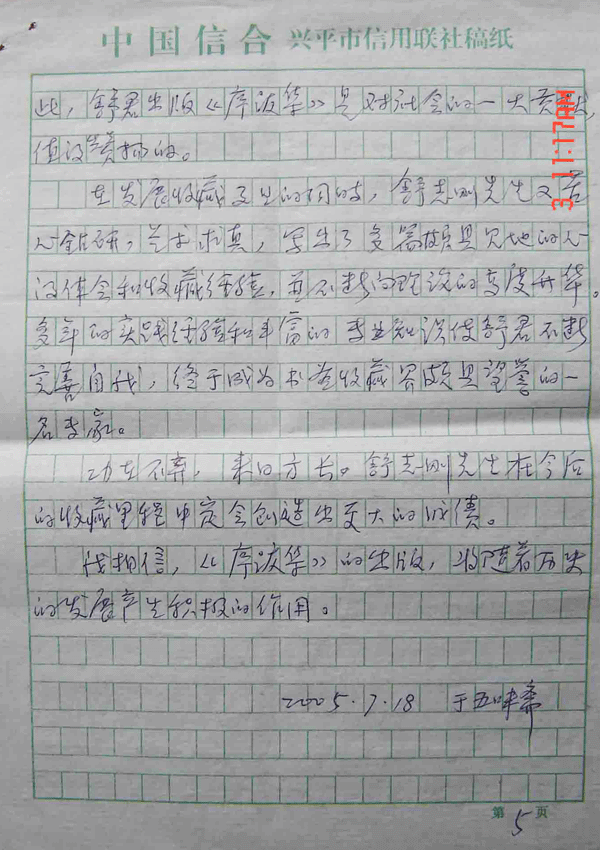 中国信合 兴平市信用联社稿纸
此，舒君出版《序跋华》是对社会的一大贡献，
值得赞扬的。
在发展收藏事业的同时，舒志刚先生又苦
心钻研，学术求真，写出了多篇颇具见地的心
得体会和收藏经验，并不断向理论的高度升华。
多年的实践经验和丰富的专业知识使舒君不断
完善自我，终于成为书签收藏界颇具望誉的一
名专家。
功在不弃，来日方长。舒志刚先生在今后
的收藏里程中定会创造出更大的成绩。
我相信，《序跋华》的出版，将随着历史
的发展产生积极的作用。
2005.7.18 于五味斋
第5页
3 11:17AM